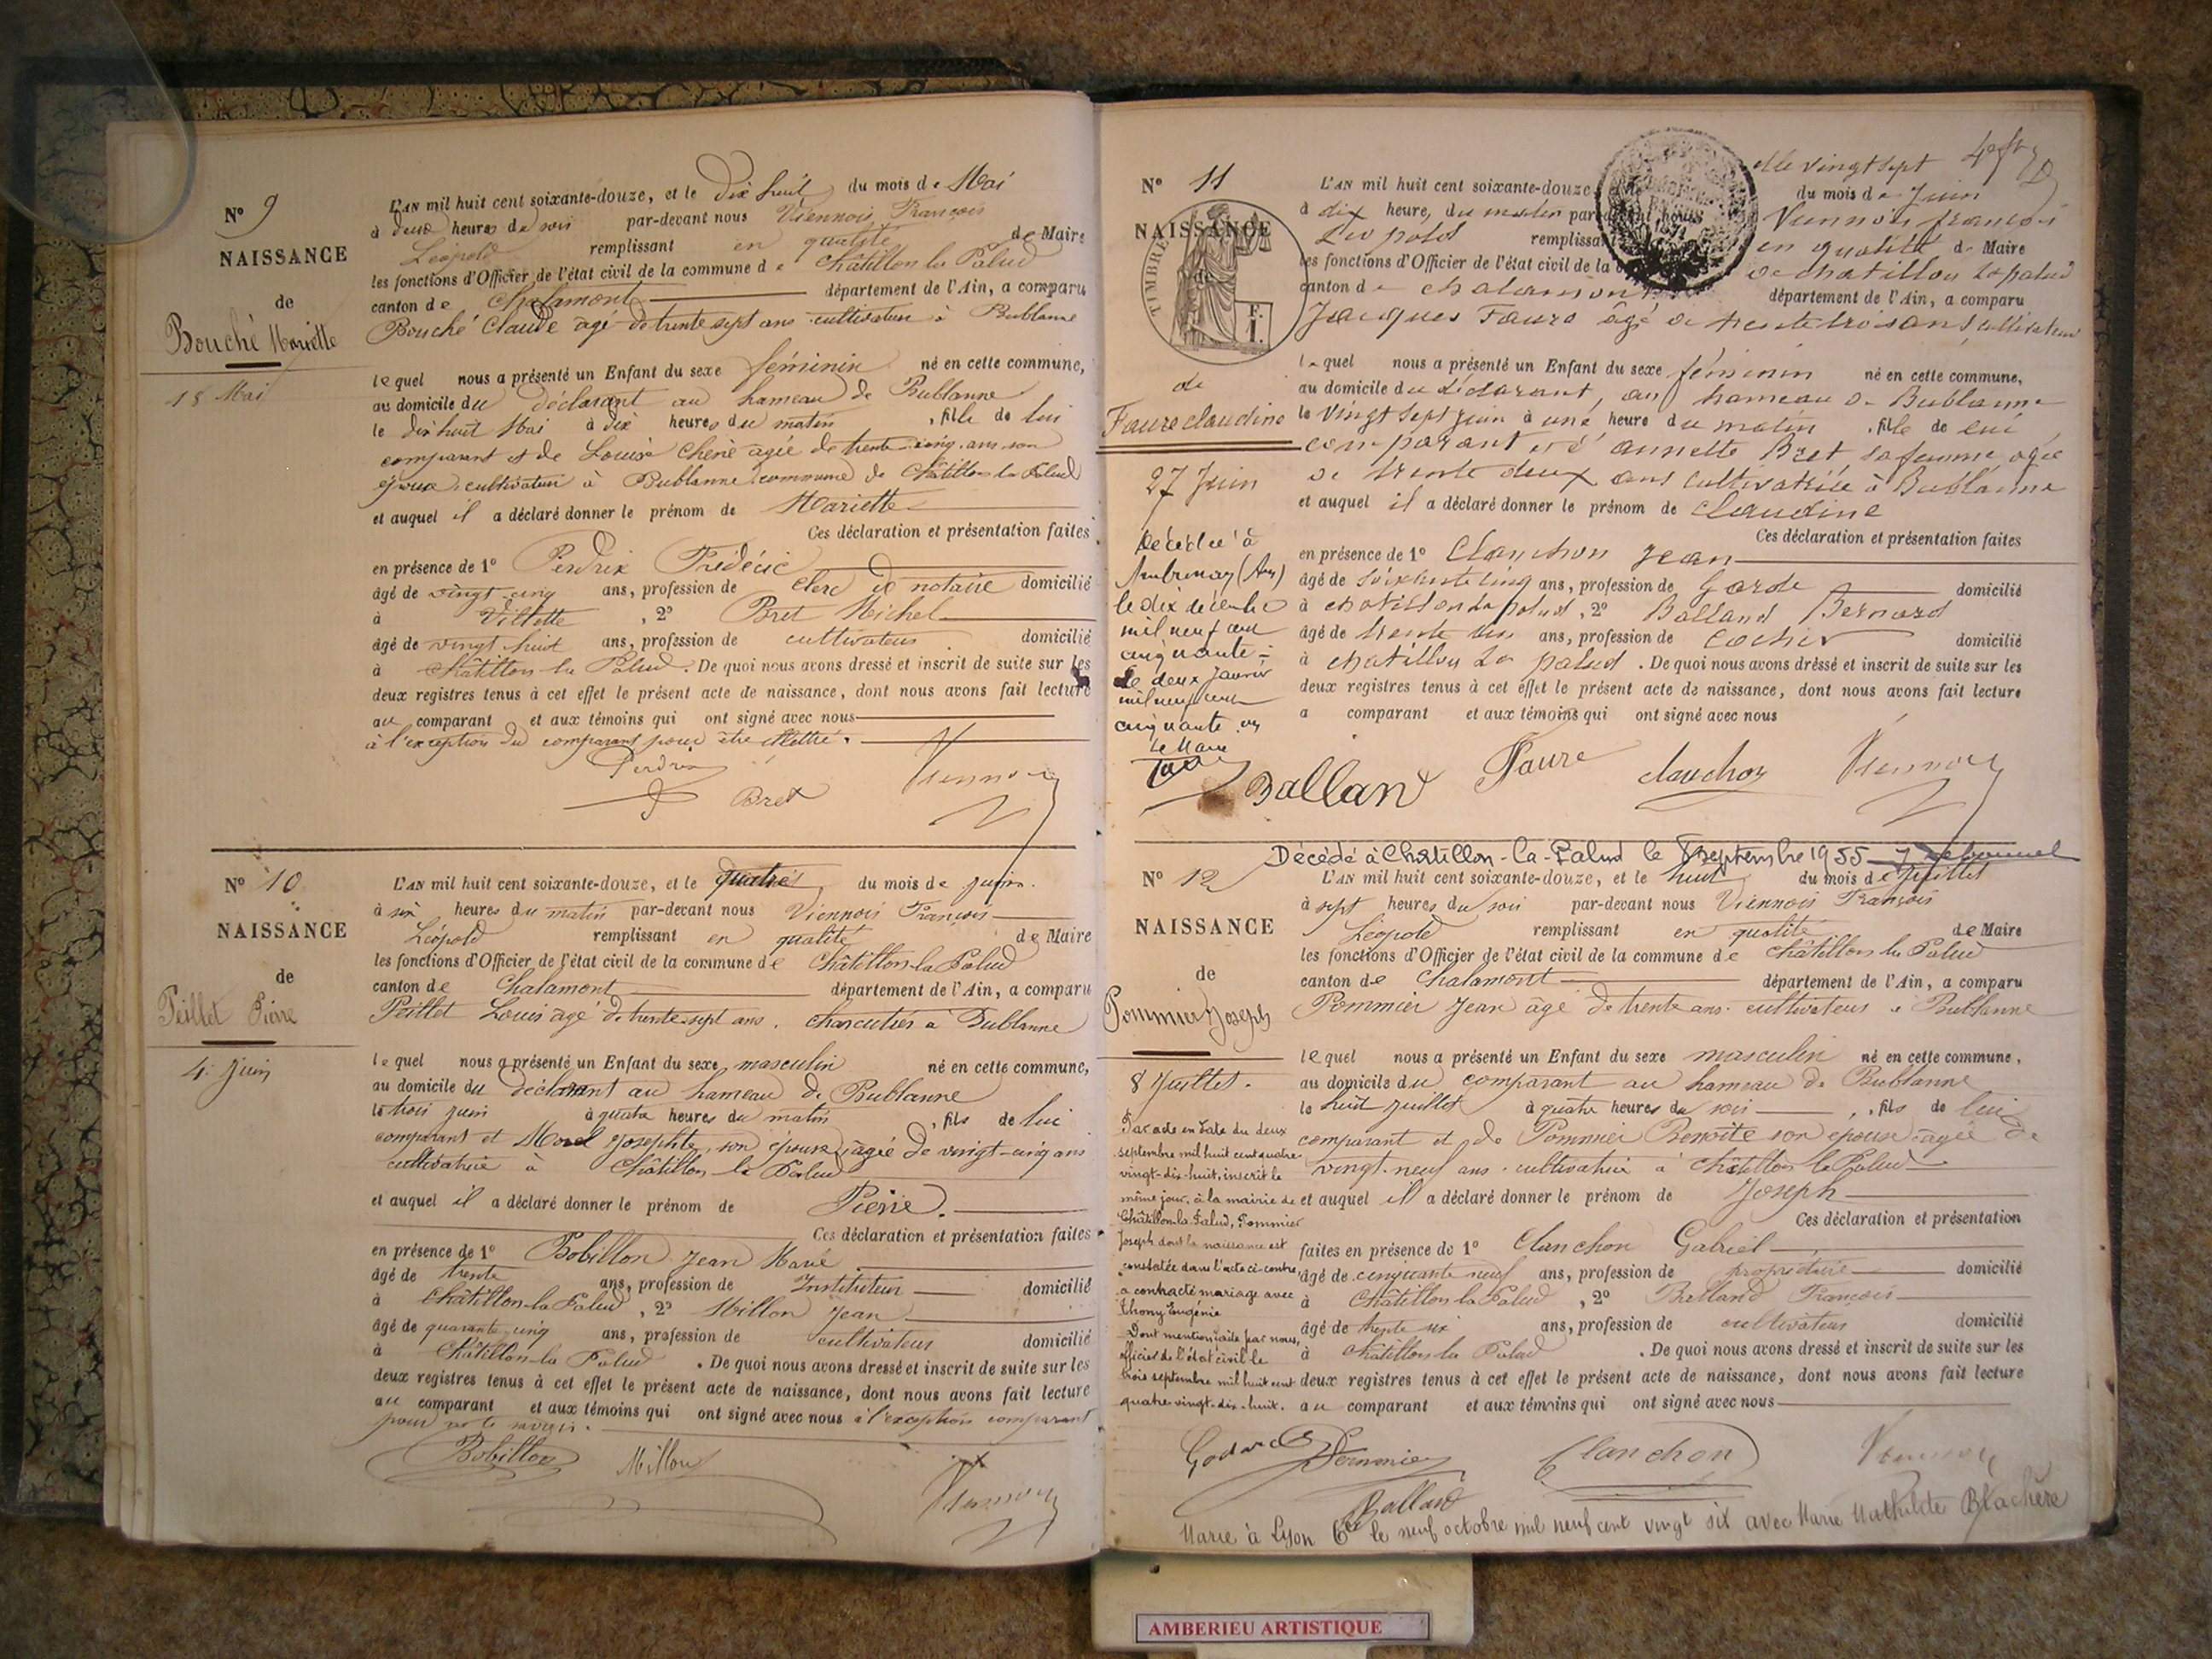 N° 9
NAISSANCE
de
Bouché Mariette
18 Mai
L'AN mil huit cent soixante-douze, et le dix huit du mois de Mai
à deux heures du soir par-devant nous Viennois François
Léopold remplissant en qualité de Maire
les fonctions d'Officier de l'état civil de la commune de Châtillon la Palud
canton de Chalamont département de l'Ain, a comparu
Bouché Claude âgé de trente sept ans cultivateur à Bublanne
lequel nous a présenté un Enfant du sexe féminin né en cette commune,
au domicile du déclarant au hameau de Bublanne
le dix huit Mai à dix heures du matin , fille de lui
comparant et de Louise Chêne agée de trente cinq ans son
épouse, cultivateur à Bublanne commune de Châtillon la Palud
et auquel il a déclaré donner le prénom de Mariette
Ces déclaration et présentation faites
en présence de 1° Perdrix Frédéric
âgé de vingt cinq ans, profession de clerc de notaire domicilié
à Villette , 2° Bret Michel
âgé de vingt huit ans, profession de cultivateur domicilié
à Châtillon la Palud. De quoi nous avons dressé et inscrit de suite sur les
deux registres tenus à cet effet le présent acte de naissance, dont nous avons fait lecture
au comparant et aux témoins qui ont signé avec nous
à l'exception du comparant pour être illettré.
Perdrix
Bret
Viennois
N° 10
NAISSANCE
de
Peillet Pierre
4 Juin
L'AN mil huit cent soixante-douze, et le quatre, du mois de juin.
à six heures du matin par-devant nous Viennois François
Léopold remplissant en qualité de Maire
les fonctions d'Officier de l'état civil de la commune de Châtillon la Palud
canton de Chalamont département de l'Ain, a comparu
Peillet Louis âgé de trente sept ans. charcutier à Bublanne
lequel nous a présenté un Enfant du sexe masculin né en cette commune,
au domicile du déclarant au hameau de Bublanne
le trois juin à quatre heures du matin , fils de lui
comparant et Morel Josephte, son épouse, âgée de vingt-cinq ans
cultivatrice à Châtillon la Palud
et auquel il a déclaré donner le prénom de Pierre.
Ces déclaration et présentation faites
en présence de 1° Bobillon Jean Marie
âgé de trente ans, profession de Instituteur domicilié
à Châtillon-la-Palud , 2° Millon Jean
âgé de quarante cinq ans, profession de cultivateur domicilié
à Châtillon-la Palud . De quoi nous avons dressé et inscrit de suite sur les
deux registres tenus à cet effet le présent acte de naissance, dont nous avons fait lecture
au comparant et aux témoins qui ont signé avec nous à l'exception comparant
pour ne le savoir.
Bobillon Millon
Viennois
N° 11
NAISSANCE
TIMBRE
F.
1.
de
Faure claudine
27 Juin
Décédée à
le dix décembre
mil neuf cent
cinquante
Le deux Janvier
mil neuf cent
cinquante un
Le Maire
L'AN mil huit cent soixante-douze le vingt sept du mois de Juin
à dix heure, du matin par-devant nous Viennois françois
Léopold remplissant en qualité de Maire
les fonctions d'Officier de l'état civil de la de chatillon la palud
canton de chalamont département de l'Ain, a comparu
Jacques Faure âgé de trente trois ans cultivateur
lequel nous a présenté un Enfant du sexe féminin né en cette commune,
au domicile du déclarant, au hameau de Bublanne
le vingt sept juin à une heure du matin , fille de lui
comparant et d'annette Bret sa femme, agée
de trente deux ans cultivatrice à Bublanne
et auquel il a déclaré donner le prénom de claudine
Ces déclaration et présentation faites
en présence de 1° Clanchon Jean
âgé de soixante cinq ans, profession de Garde domicilié
à chatillon la palud , 2° Balland Bernard
âgé de trente ans, profession de Cocher domicilié
à chatillon la palud . De quoi nous avons dréssé et inscrit de suite sur les
deux registres tenus à cet effet le présent acte de naissance, dont nous avons fait lecture
a comparant et aux témoins qui ont signé avec nous
Balland Faure clanchon Viennois
Décédé à Chatillon-la-Palud le 8 septembre 1955
N° 12
NAISSANCE
de
Pommier Joseph
8 Juillet.
Par acte en date du deux
septembre mil huit cent quatre
vingt-dix-huit, inscrit le
même jour, à la mairie de
Châtillon-la-Palud, Pommier
Joseph dont la naissance est
constatée dans l'acte ci-contre,
a contracté mariage avec
Thomy Eugénie
Dont mention faite par nous,
officier de l'état civil le
trois septembre mil huit cent
quatre-vingt-dix-huit.
L'AN mil huit cent soixante-douze, et le huit du mois de Juillet
à sept heures du soir par-devant nous Viennois François
Léopold remplissant en qualité de Maire
les fonctions d'Officier de l'état civil de la commune de Châtillon la Palud
canton de Chalamont département de l'Ain, a comparu
Pommier Jean âgé de trente ans. cultivateur à Bublanne
lequel nous a présenté un Enfant du sexe masculin né en cette commune,
au domicile du comparant au hameau de Bublanne
le huit juillet à quatre heures du soir , fils de lui
comparant et de Pommier Benoîte son épouse âgée de
vingt-neuf ans. cultivatrice à Châtillon la Palud
et auquel il a déclaré donner le prénom de Joseph
Ces déclaration et présentation
faites en présence de 1° Clanchon Gabriel
âgé de cinquante neuf ans, profession de propriétaire domicilié
à Châtillon la Palud , 2° Balland François
âgé de trente six ans, profession de cultivateur domicilié
à Châtillon la Palud . De quoi nous avons dressé et inscrit de suite sur les
deux registres tenus à cet effet le présent acte de naissance, dont nous avons fait lecture
au comparant et aux témoins qui ont signé avec nous
Godard Pommier Clanchon Viennois
Balland
Marié à Lyon 6e le neuf octobre mil neuf cent vingt six avec Marie Mathilde Blachère
AMBERIEU ARTISTIQUE